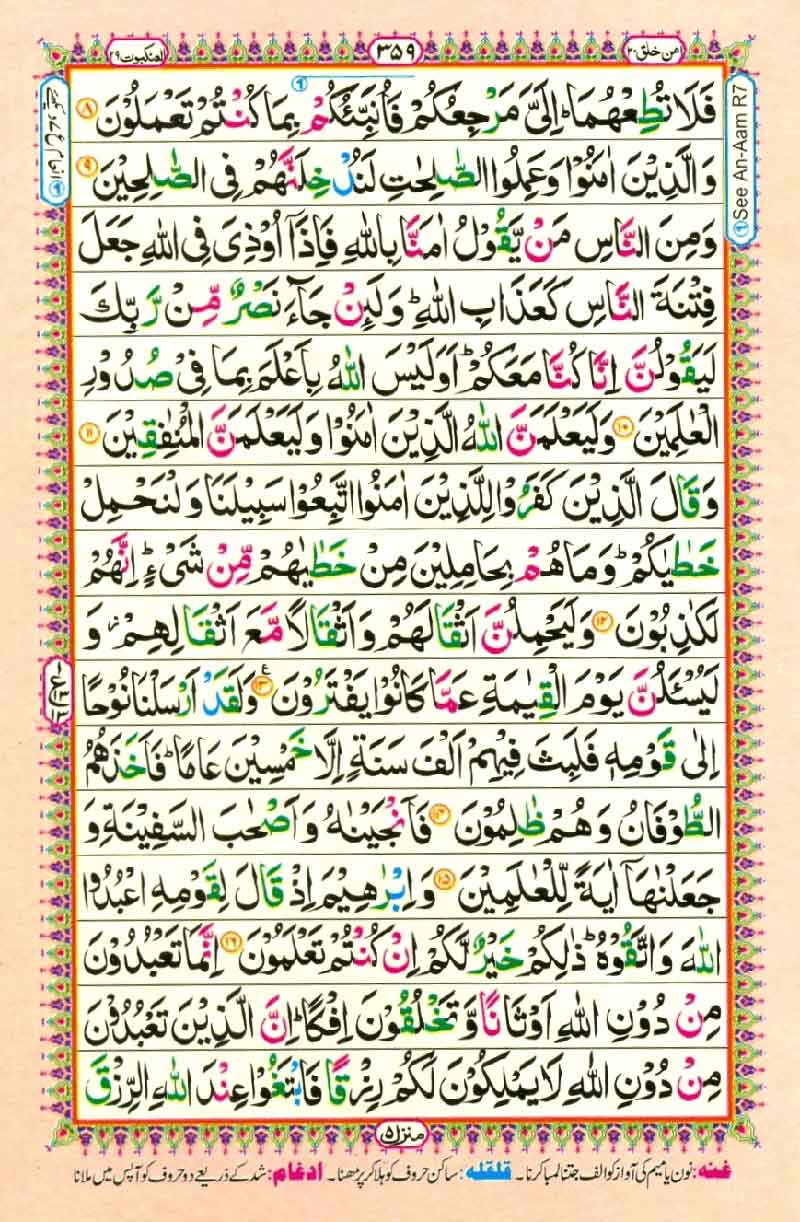 امن خلق ۲۰
۳۵۹
العنکبوت ۲۹
فَلَا تُطِعْهُمَا ؕ اِلَیَّ مَرْجِعُکُمْ فَاُنَبِّئُکُمْ بِمَا کُنْتُمْ تَعْمَلُوْنَ ۸
وَالَّذِیْنَ اٰمَنُوْا وَعَمِلُوا الصّٰلِحٰتِ لَنُدْخِلَنَّهُمْ فِی الصّٰلِحِیْنَ ۹
وَمِنَ النَّاسِ مَنْ یَّقُوْلُ اٰمَنَّا بِاللّٰهِ فَاِذَاۤ اُوْذِیَ فِی اللّٰهِ جَعَلَ
فِتْنَةَ النَّاسِ کَعَذَابِ اللّٰهِ ؕ وَلَئِنْ جَآءَ نَصْرٌ مِّنْ رَّبِّكَ
لَیَقُوْلُنَّ اِنَّا کُنَّا مَعَکُمْ ؕ اَوَلَیْسَ اللّٰهُ بِاَعْلَمَ بِمَا فِیْ صُدُوْرِ
الْعٰلَمِیْنَ ۱۰ وَلَیَعْلَمَنَّ اللّٰهُ الَّذِیْنَ اٰمَنُوْا وَلَیَعْلَمَنَّ الْمُنٰفِقِیْنَ ۱۱
وَقَالَ الَّذِیْنَ کَفَرُوْا لِلَّذِیْنَ اٰمَنُوا اتَّبِعُوْا سَبِیْلَنَا وَلْنَحْمِلْ
خَطٰیٰکُمْ ؕ وَمَا هُمْ بِحَامِلِیْنَ مِنْ خَطٰیٰهُمْ مِّنْ شَیْءٍ ؕ اِنَّهُمْ
لَکٰذِبُوْنَ ۱۲ وَلَیَحْمِلُنَّ اَثْقَالَهُمْ وَاَثْقَالًا مَّعَ اَثْقَالِهِمْ ز وَ
لَیُسْئَلُنَّ یَوْمَ الْقِیٰمَةِ عَمَّا کَانُوْا یَفْتَرُوْنَ ۱۳ ع وَلَقَدْ اَرْسَلْنَا نُوْحًا
اِلٰی قَوْمِهٖ فَلَبِثَ فِیْهِمْ اَلْفَ سَنَةٍ اِلَّا خَمْسِیْنَ عَامًا ؕ فَاَخَذَهُمُ
الطُّوْفَانُ وَهُمْ ظٰلِمُوْنَ ۱۴ فَاَنْجَیْنٰهُ وَاَصْحٰبَ السَّفِیْنَةِ وَ
جَعَلْنٰهَاۤ اٰیَةً لِّلْعٰلَمِیْنَ ۱۵ وَاِبْرٰهِیْمَ اِذْ قَالَ لِقَوْمِهِ اعْبُدُوا
اللّٰهَ وَاتَّقُوْهُ ؕ ذٰلِکُمْ خَیْرٌ لَّکُمْ اِنْ کُنْتُمْ تَعْلَمُوْنَ ۱۶ اِنَّمَا تَعْبُدُوْنَ
مِنْ دُوْنِ اللّٰهِ اَوْثَانًا وَّتَخْلُقُوْنَ اِفْکًا ؕ اِنَّ الَّذِیْنَ تَعْبُدُوْنَ
مِنْ دُوْنِ اللّٰهِ لَا یَمْلِکُوْنَ لَکُمْ رِزْقًا فَابْتَغُوْا عِنْدَ اللّٰهِ الرِّزْقَ
① See An-Aam R7
منزل ۵
غنه: نون یا میم کی آواز کو الف جتنا لمبا کرنا۔ قلقله: ساکن حروف کو ہلا کر پڑھنا۔ ادغام: شد کے ذریعے دو حروف کو آپس میں ملانا